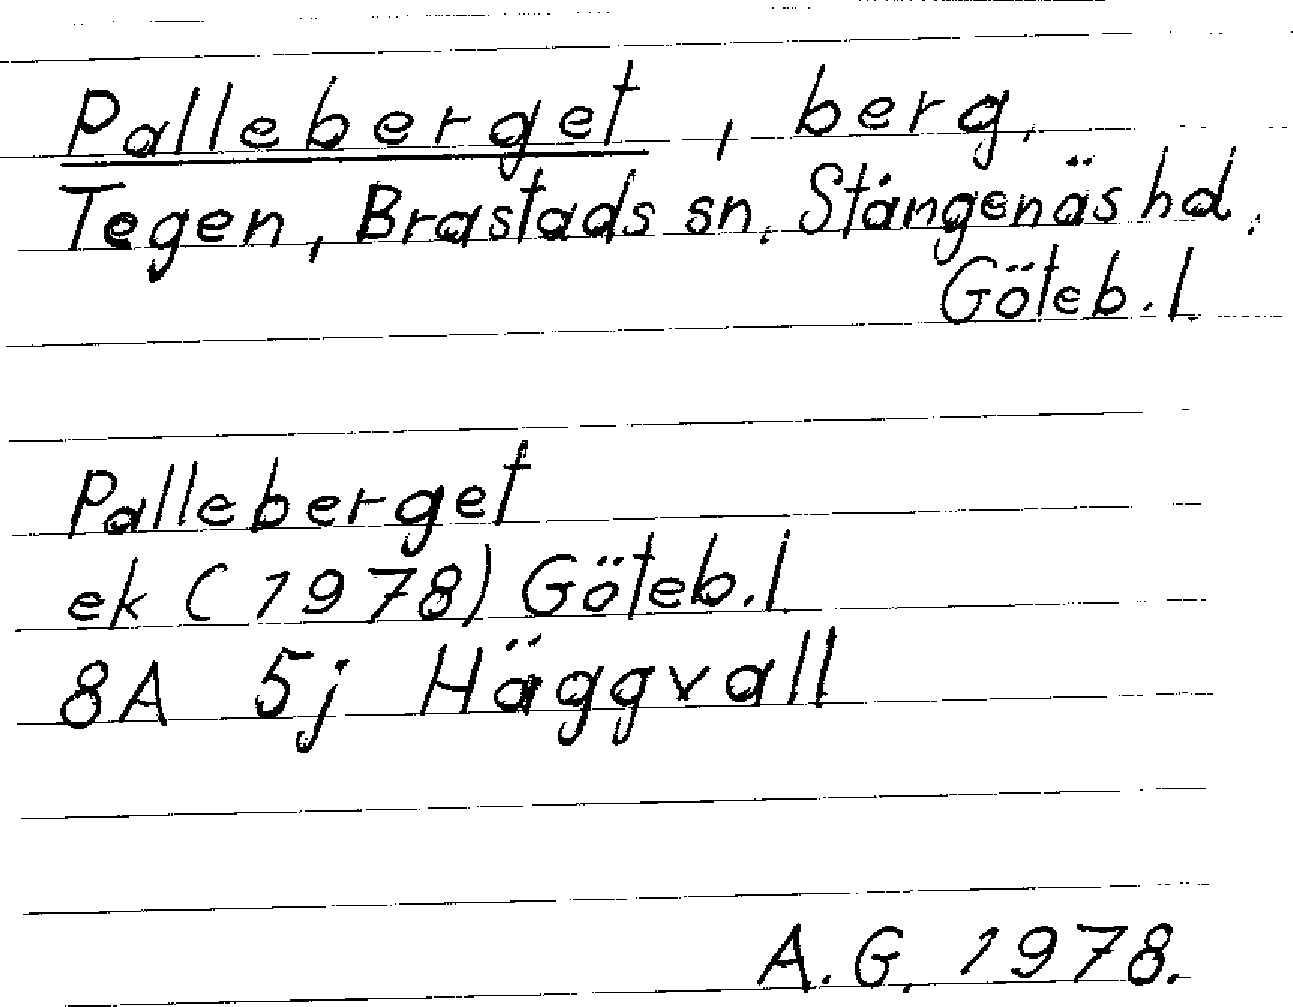 Palleberget, berg.
Tegen, Brastads sn, Stångenäs hd,
Göteb. l.
Palleberget
ek (1978) Göteb. l
8A 5j Häggvall
A. G. 1978.